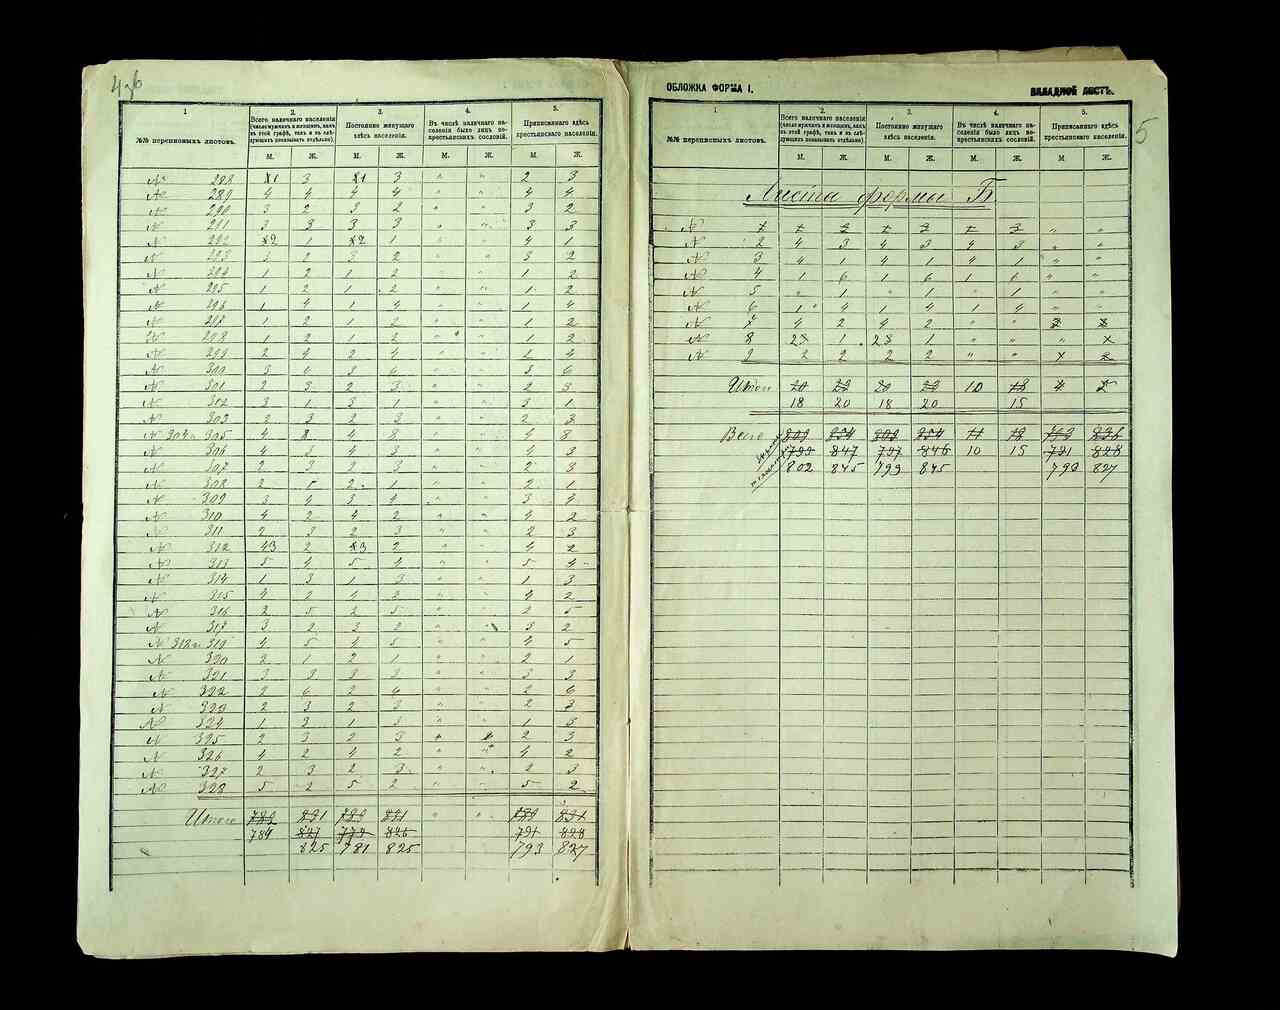 4 об
1
2.
3.
4.
5.
№№ переписныхъ листовъ.
Всего наличнаго населенія
(число мужчинъ и женщинъ, какъ въ этой графѣ, такъ и въ слѣдующихъ показывать отдѣльно).
Постоянно живущаго здѣсь населенія.
Въ числѣ наличнаго населенія было лицъ не-крестьянскихъ сословій.
Приписаннаго здѣсь крестьянскаго населенія.
М. Ж. М. Ж. М. Ж. М. Ж.
№ 288 1 3 1 3 " " 2 3
№ 289 4 4 4 4 " " 4 4
№ 290 3 2 3 2 " " 3 2
№ 291 3 3 3 3 " " 3 3
№ 292 2 1 2 1 " " 4 1
№ 293 3 2 3 2 " " 3 2
№ 294 1 2 1 2 " " 1 2
№ 295 1 2 1 2 " " 1 2
№ 296 1 4 1 4 " " 1 4
№ 297 1 2 1 2 " " 1 2
№ 298 1 2 1 2 " " 1 2
№ 299 2 4 2 4 " " 2 4
№ 300 3 6 3 6 " " 3 6
№ 301 2 3 2 3 " " 2 3
№ 3 1 3 1 " " 3 1
№ 303 2 3 2 3 " " 2 3
№ 304 и 305 4 8 4 8 " " 4 8
№ 306 4 3 4 3 " " 4 3
№ 307 2 3 2 3 " " 2 3
№ 308 2 2 1 " " 2 1
№ 309 3 4 3 4 " " 3 4
№ 310 4 2 4 2 " " 4 2
№ 311 2 3 2 3 " " 2 3
№ 312 3 2 3 2 " " 4 2
№ 313 5 4 5 4 " " 5 4
№ 314 1 3 1 3 " " 1 3
№ 315 4 2 4 " " 4 2
№ 316 2 5 2 5 " " 2 5
№ 317 3 2 3 2 " " 3 2
№ 318 и 319 4 5 4 5 " " 4 5
№ 320 2 1 2 1 " " 2 1
№ 321 3 3 3 3 " " 3 3
№ 322 2 6 2 6 " " 2 6
№ 323 2 3 2 3 " " 2 3
№ 324 1 3 1 3 " " 1 3
№ 325 2 3 2 3 2 3
№ 326 4 2 4 2 " " 4 2
№ 327 2 3 2 3 " " 2 3
№ 328 5 2 5 2 " " 5 2
Итого 782 831 " " 831
784 827 779 826 791 828
825 781 825 793 827
ОБЛОЖКА ФОРМА I.
ВКЛАДНОЙ ЛИСТЪ.
5
1.
2.
3.
4.
5.
№№ переписныхъ листовъ.
Всего наличнаго населенія
(число мужчинъ и женщинъ, какъ въ этой графѣ, такъ и въ слѣдующихъ показывать отдѣльно).
Постоянно живущаго здѣсь населенія.
Въ числѣ наличнаго населенія было лицъ не-крестьянскихъ сословій.
Приписаннаго здѣсь крестьянскаго населенія.
М. Ж. М. Ж. М. Ж. М. Ж.
Листы формы Б.
№ 1 " "
№ 2 4 3 4 3 4 3 " "
№ 3 4 1 4 1 4 1 " "
№ 4 1 6 1 6 1 6 " "
№ 5 " 1 " 1 " 1 " "
№ 6 1 4 1 4 1 4 " "
№ 7 4 2 4 2 " "
№ 8 1 1 " " "
№ 9 2 2 2 2 " "
Итого 20 23 20 23 10 18
18 20 18 20 15
Всего 803 854 803 854 11 18 793 836
799 847 797 846 10 15 791 828
802 845 799 845 793 827